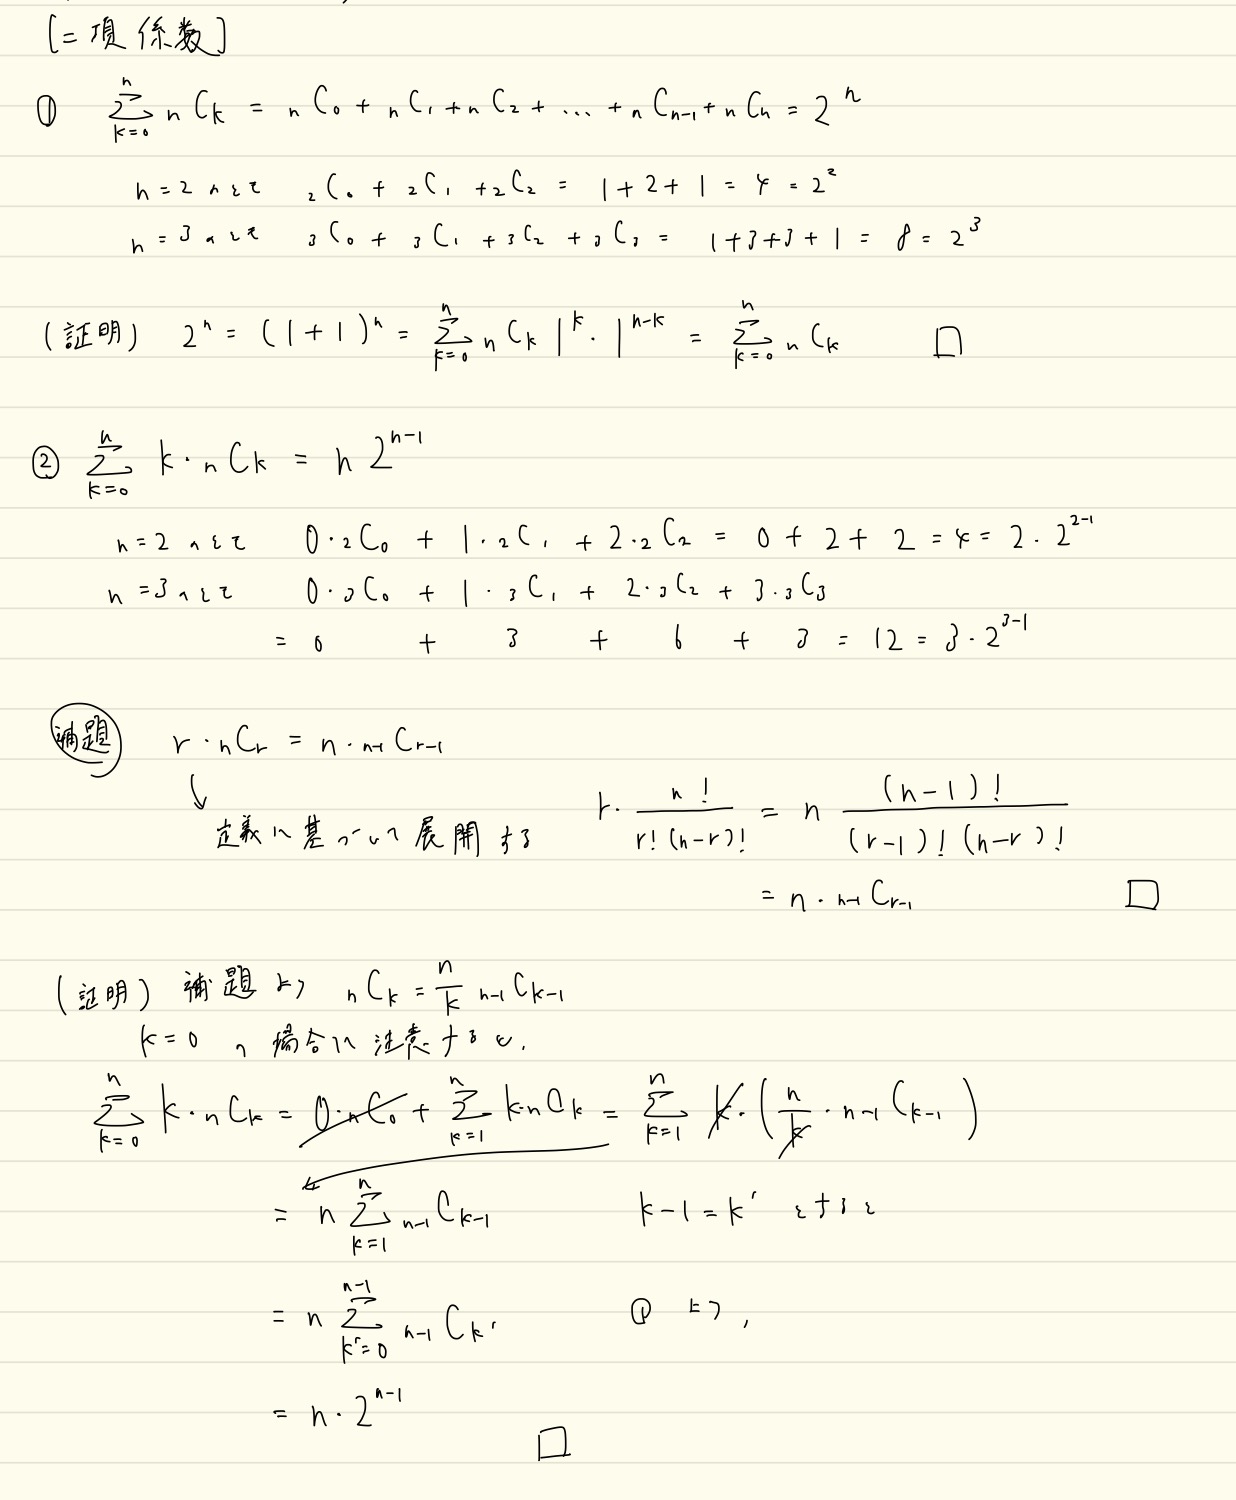 [二項係数]
① \sum_{k=0}^{n} {}_nC_k = {}_nC_0 + {}_nC_1 + {}_nC_2 + … + {}_nC_{n-1} + {}_nC_n = 2^n
n=2 のとき {}_2C_0 + {}_2C_1 + {}_2C_2 = 1+2+1 = 4 = 2^2
n=3 のとき {}_3C_0 + {}_3C_1 + {}_3C_2 + {}_3C_3 = 1+3+3+1 = 8 = 2^3
(証明) 2^n = (1+1)^n = \sum_{k=0}^{n} {}_nC_k 1^k · 1^{n-k} = \sum_{k=0}^{n} {}_nC_k □
② \sum_{k=0}^{n} k·{}_nC_k = n 2^{n-1}
n=2 のとき 0·{}_2C_0 + 1·{}_2C_1 + 2·{}_2C_2 = 0+2+2 = 4 = 2·2^{2-1}
n=3 のとき 0·{}_3C_0 + 1·{}_3C_1 + 2·{}_3C_2 + 3·{}_3C_3
= 0 + 3 + 6 + 3 = 12 = 3·2^{3-1}
補題 r·{}_nC_r = n·{}_{n-1}C_{r-1}
↓
定義に基づいて展開する r·\frac{n!}{r!(n-r)!} = n \frac{(n-1)!}{(r-1)!(n-r)!}
= n·{}_{n-1}C_{r-1} □
(証明) 補題より {}_nC_k = \frac{n}{k} {}_{n-1}C_{k-1}
k=0 の場合に注意すると,
\sum_{k=0}^{n} k·{}_nC_k = 0·{}_nC_0 + \sum_{k=1}^{n} k·{}_nC_k = \sum_{k=1}^{n} k·(\frac{n}{k}·{}_{n-1}C_{k-1})
= n \sum_{k=1}^{n} {}_{n-1}C_{k-1} k-1=k' とすると
= n \sum_{k'=0}^{n-1} {}_{n-1}C_{k'} ① より,
= n·2^{n-1}
□